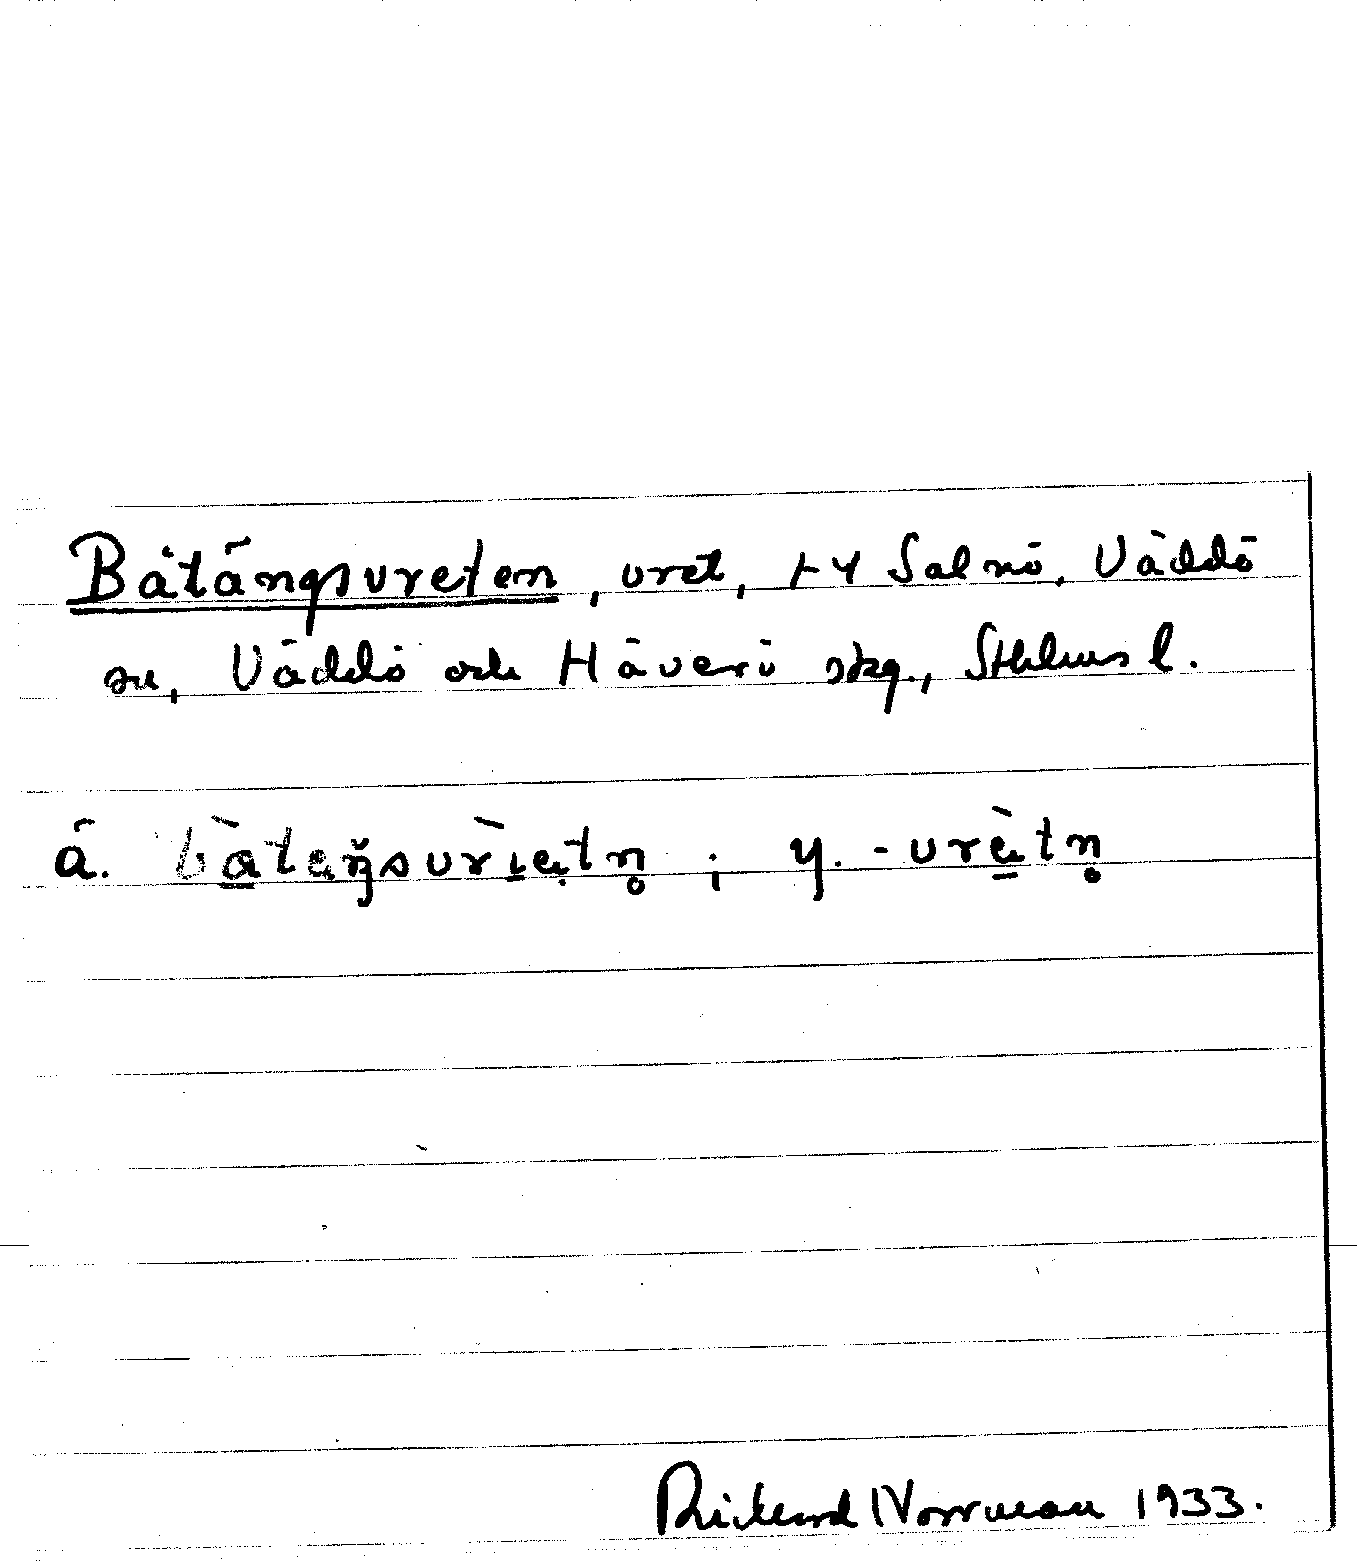 Båtängsvreten, vret, ty Salnö, Väddö
sn, Väddö och Häverö skg., Sthlms l.
ä. bàtæŋsvrìetn̥ ; y. -vrètn̥
Rickard Norrman 1933.